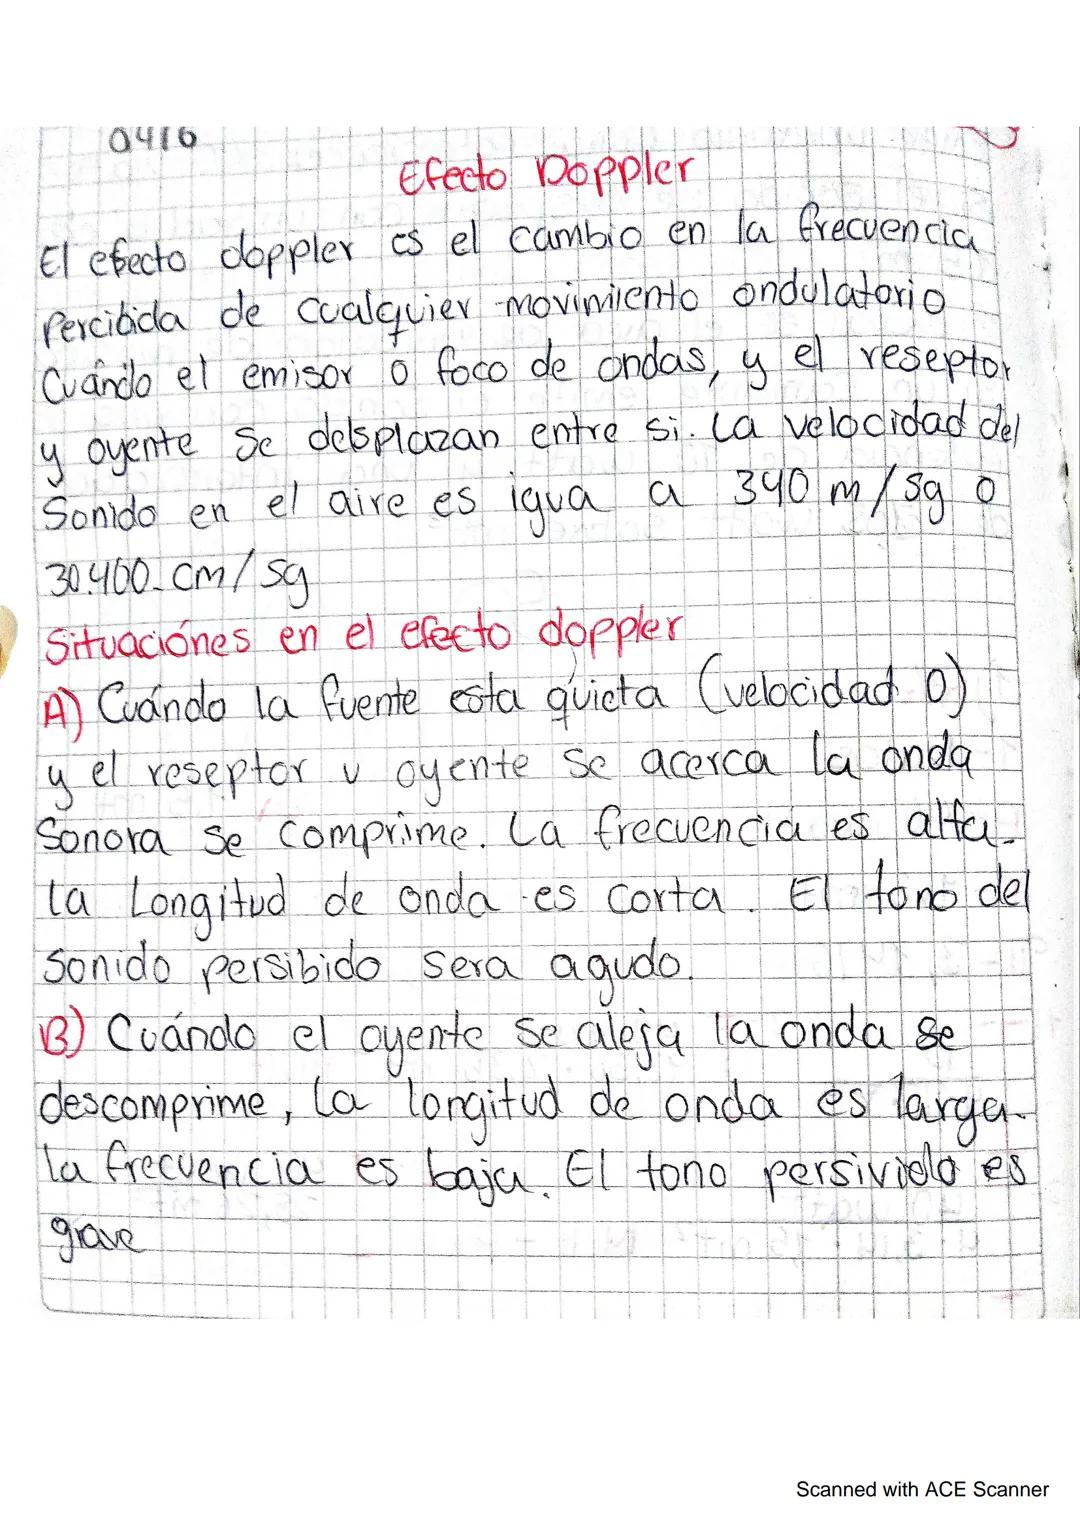 0416
Efecto Doppler
El efecto doppler es el cambio en la frecuencia
percibida de cualquier movimiento ondulatorio
Cuándo el emisor o foco de ondas, y el reseptor
y oyente se delsplazan entre si. La velocidad del
Sonido en el aire es igua a 340 m/sg o
30.400 cm/sg
Situaciónes en el efecto doppler
A) Cuándo la fuente esta quieta (velocidad 0)
y el reseptor u oyente se acerca la onda
Sonora se comprime. La frecuencia es alta.
la Longitud de onda es corta. El tono del
Sonido persibido sera agudo.
B) Cuándo el oyente se aleja la onda se
descomprime, la longitud de onda es larga.
la frecuencia es baja. El tono persivido es
grave
Scanned with ACE Scanner